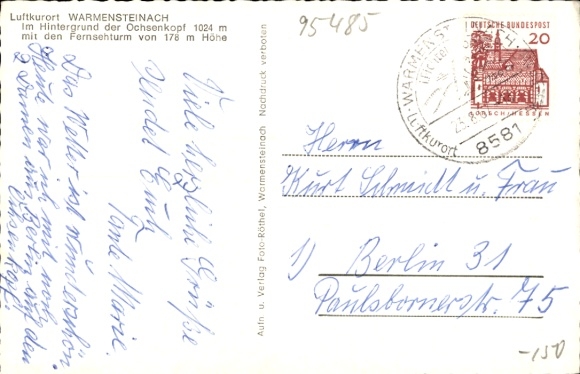 Luftkurort WARMENSTEINACH
Im Hintergrund der Ochsenkopf 1024 m
mit den Fernsehturm von 178 m Höhe
95485
Viele herzliche Grüße
sendet Euch
Tante Marie.
Das Wetter ist wunderschön.
Heute war ich mit noch
2 Damen aus Berlin auf den
Ochsenkopf.
Aufn u. Verlag Foto-Röthel, Warmensteinach Nachdruck verboten
DEUTSCHE BUNDESPOST
20
LORSCH/HESSEN
WARMENSTEINACH
Luftkurort
8581
Herrn
Kurt Schmidt u. Frau
1) Berlin 31
Paulsbornerstr. 75
-150